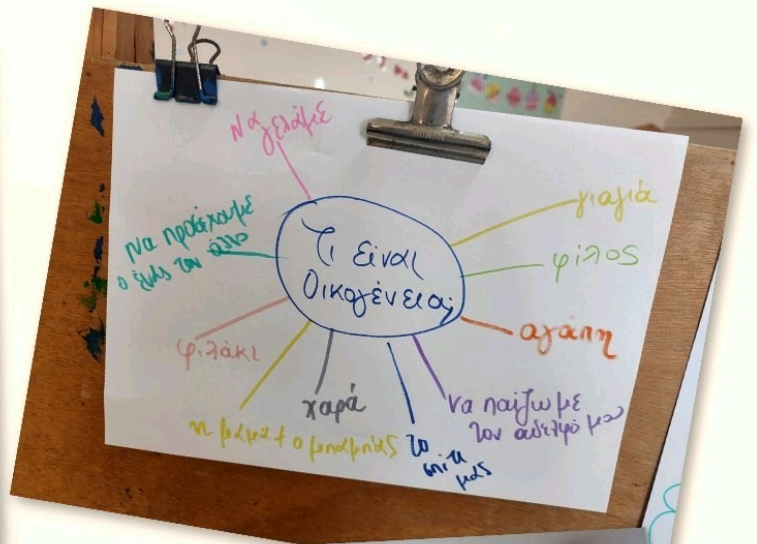 Τι είναι
Οικογένεια;
Να γελάμε
γιαγιά
φίλος
αγάπη
να παίζω με
τον αδελφό μου
το
σπίτι
μας
χαρά
η μαμά + ο μπαμπάς
φιλάκι
Να προσέχουμε
ο ένας τον άλλο